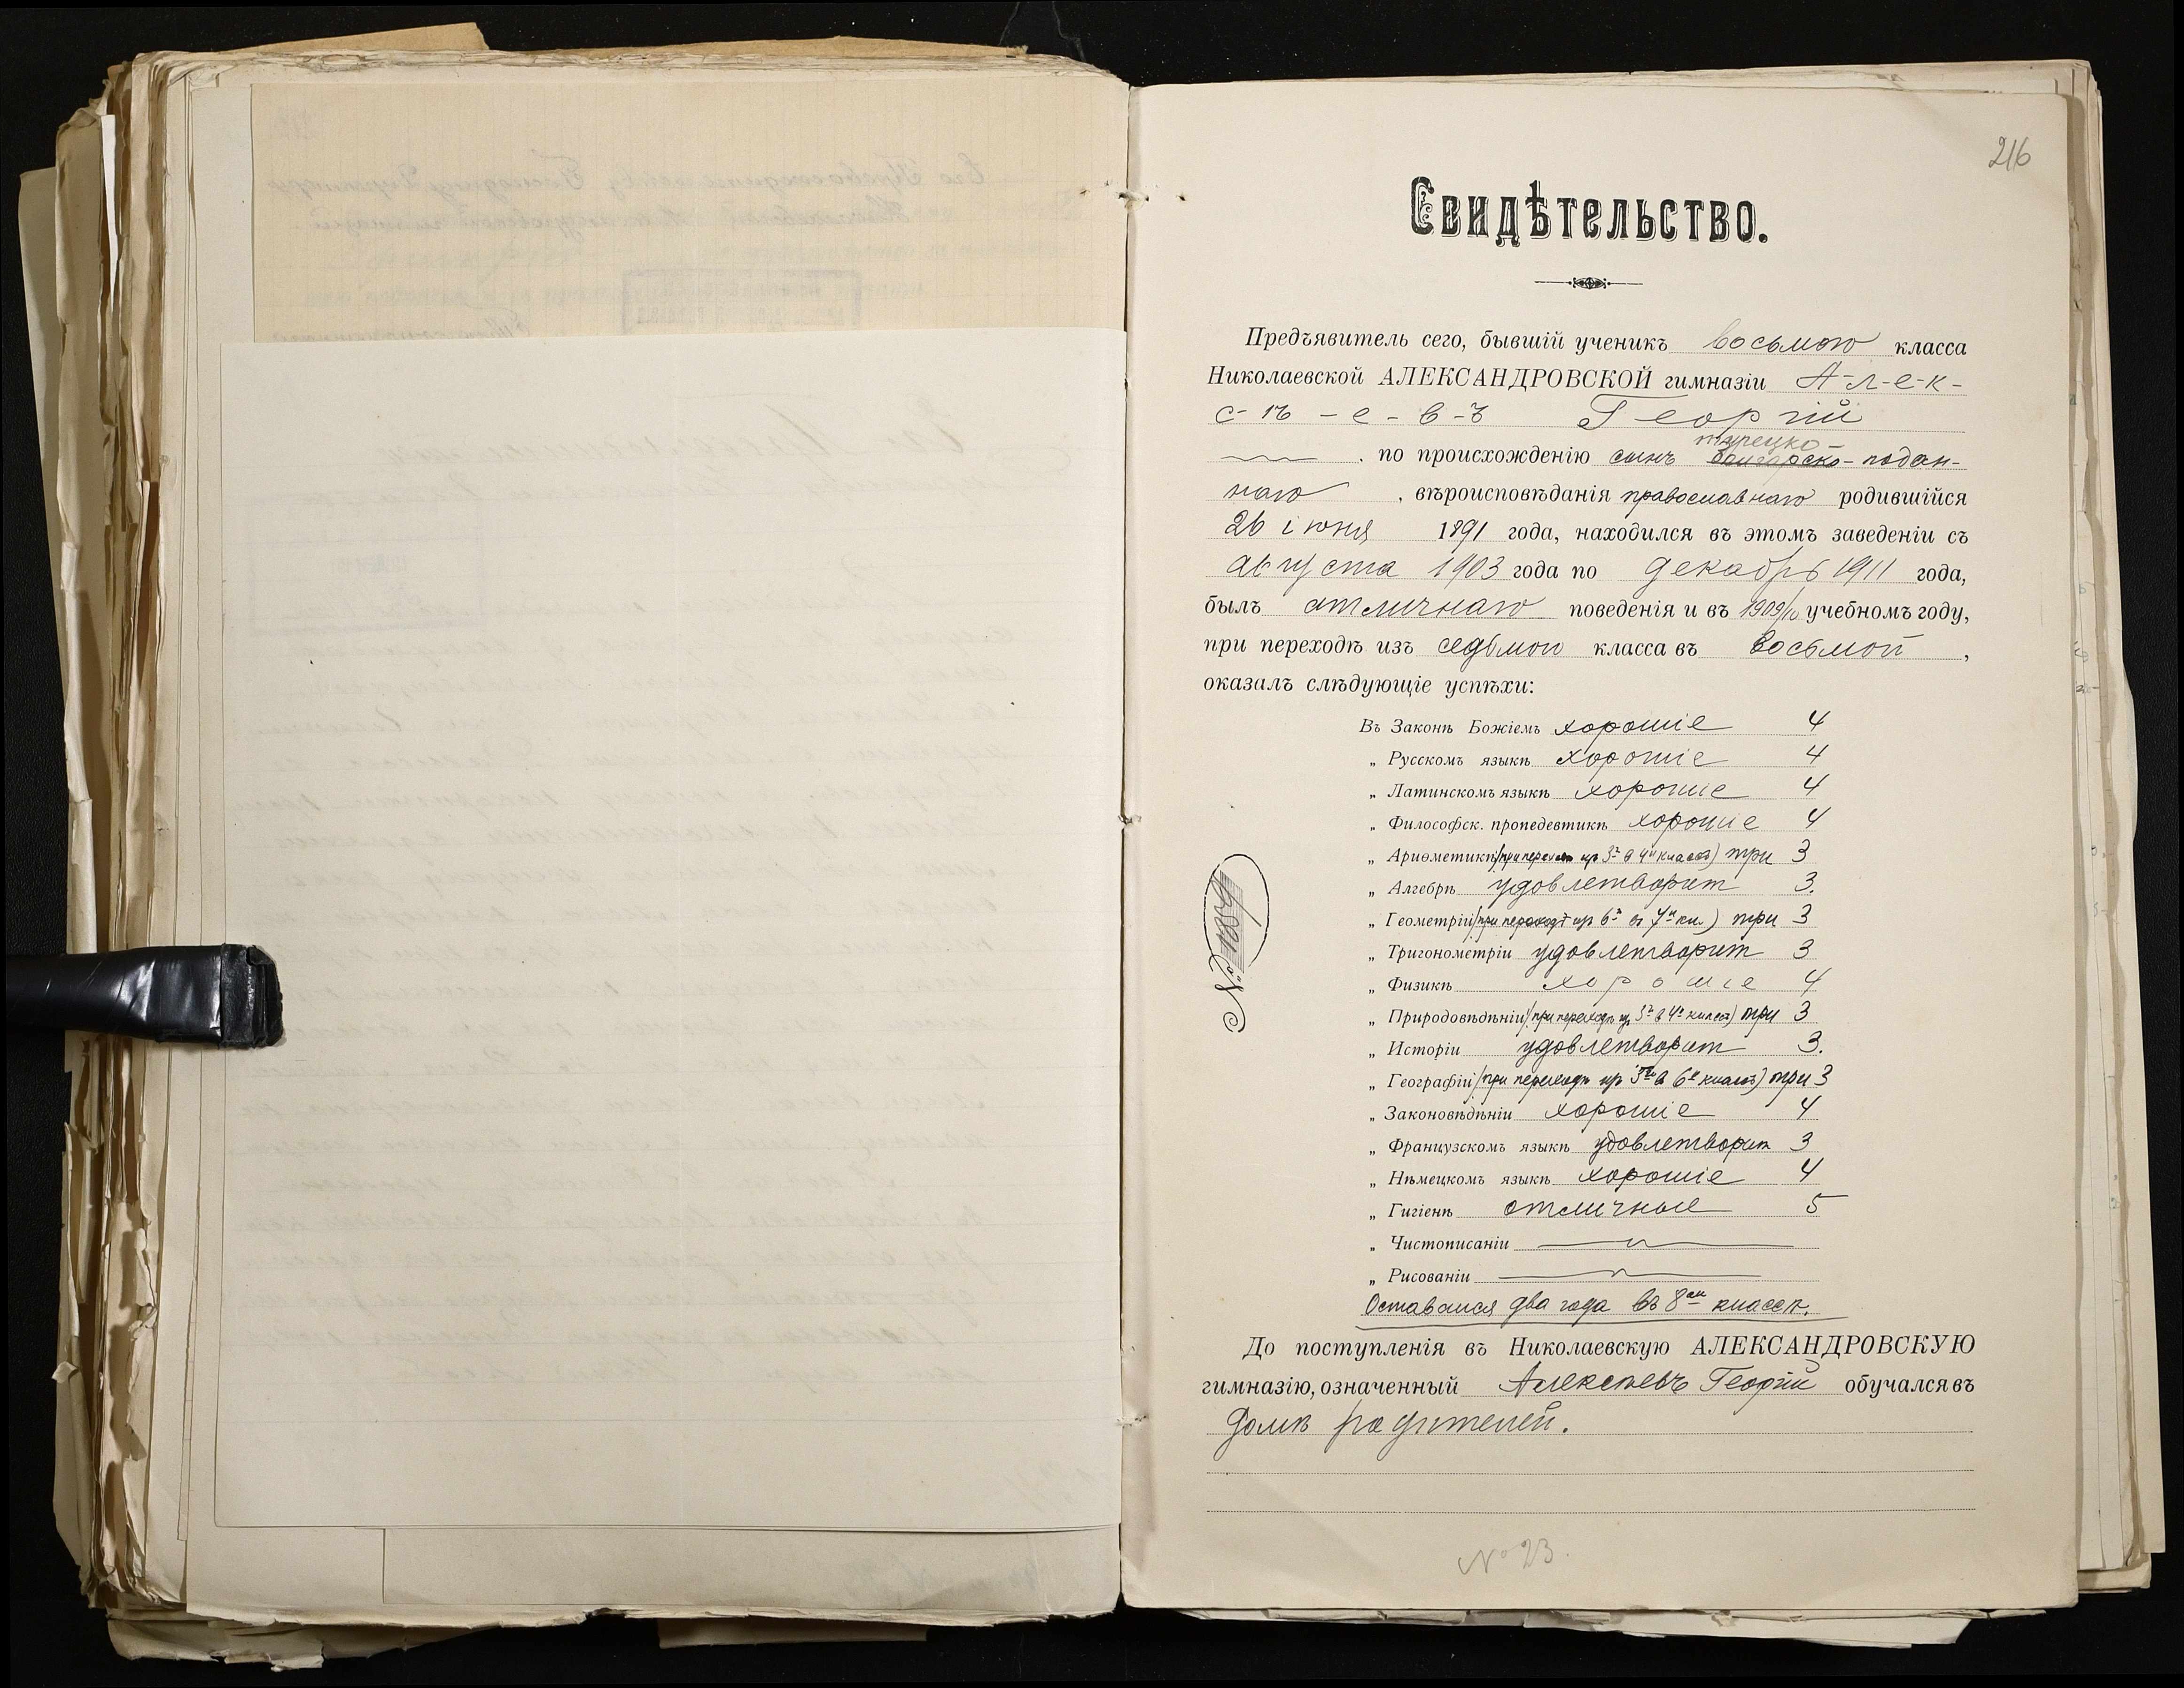 216
Свидѣтельство.
Предъявитель сего, бывшій ученикъ восьмого класса
Николаевской АЛЕКСАНДРОВСКОЙ гимназіи А-л-е-к-
с-ѣ-е-в-ъ Георгій
турецко-
, по происхожденію сынъ болгарско-поддан-
наго, вѣроисповѣданія православнаго родившійся
26 іюня 1891 года, находился въ этомъ заведеніи съ
августа 1903 года по декабрь 1911 года,
былъ отличнаго поведенія и въ 1909/10 учебномъ году,
при переходѣ изъ седьмого класса въ восьмой,
оказалъ слѣдующіе успѣхи:
Въ Законѣ Божіемъ хорошіе 4
„ Русскомъ языкѣ хорошіе 4
„ Латинскомъ языкѣ хорошіе 4
„ Философск. пропедевтикѣ хорошіе 4
„ Ариѳметикѣ (при переходѣ изъ 3го въ 4й классъ) три 3
„ Алгебрѣ удовлетворит 3.
„ Геометріи (при переходѣ изъ 6го въ 7й кл.) три 3
„ Тригонометріи удовлетворит 3
„ Физикѣ хорошіе 4
„ Природовѣдѣніи (при переходѣ изъ 3го въ 4й классъ) три 3
„ Исторіи удовлетворит 3.
„ Географіи (при переходѣ изъ 5го въ 6й классъ) три 3
„ Законовѣдѣніи хорошіе 4
„ Французскомъ языкѣ удовлетворит 3
„ Нѣмецкомъ языкѣ хорошіе 4
„ Гигіенѣ отличные 5
„ Чистописаніи
„ Рисованіи
Оставался два года въ 8ом классѣ.
До поступленія въ Николаевскую АЛЕКСАНДРОВСКУЮ
гимназію, означенный Алексѣевъ Георгій обучался въ
домѣ родителей.
№ 23.
№